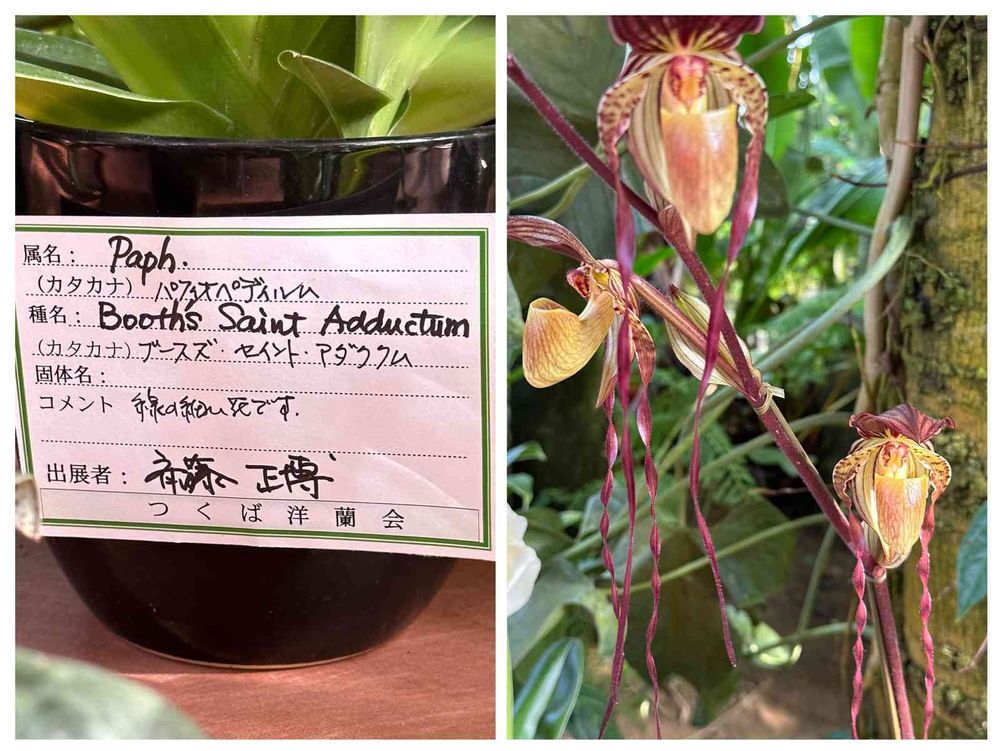 属名： Paph.
（カタカナ） パフィオペディルム
種名： Booth's Saint Adductum
（カタカナ） ブースズ・セイント・アダクタム
固体名：
コメント 線の細い花です。
出展者： 斉藤 正博
つくば洋蘭会